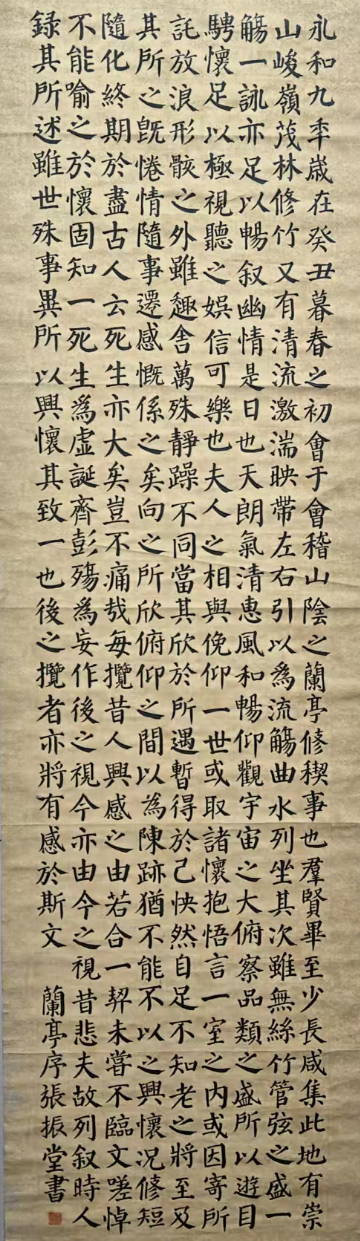 永和九年歲在癸丑暮春之初會于會稽山陰之蘭亭修禊事也羣賢畢至少長咸集此地有崇
山峻嶺茂林修竹又有清流激湍映帶左右引以為流觴曲水列坐其次雖無絲竹管弦之盛一
觴一詠亦足以暢叙幽情是日也天朗氣清惠風和暢仰觀宇宙之大俯察品類之盛所以遊目
騁懷足以極視聽之娛信可樂也夫人之相與俛仰一世或取諸懷抱悟言一室之內或因寄所
託放浪形骸之外雖趣舍萬殊靜躁不同當其欣於所遇暫得於己快然自足不知老之將至及
其所之既惓情隨事遷感慨係之矣向之所欣俯仰之間以為陳跡猶不能不以之興懷況修短
隨化終期於盡古人云死生亦大矣豈不痛哉每攬昔人興感之由若合一契未嘗不臨文嗟悼
不能喻之於懷固知一死生為虛誕齊彭殤為妄作後之視今亦由今之視昔悲夫故列叙時人
錄其所述雖世殊事異所以興懷其致一也後之攬者亦將有感於斯文 蘭亭序張振堂書